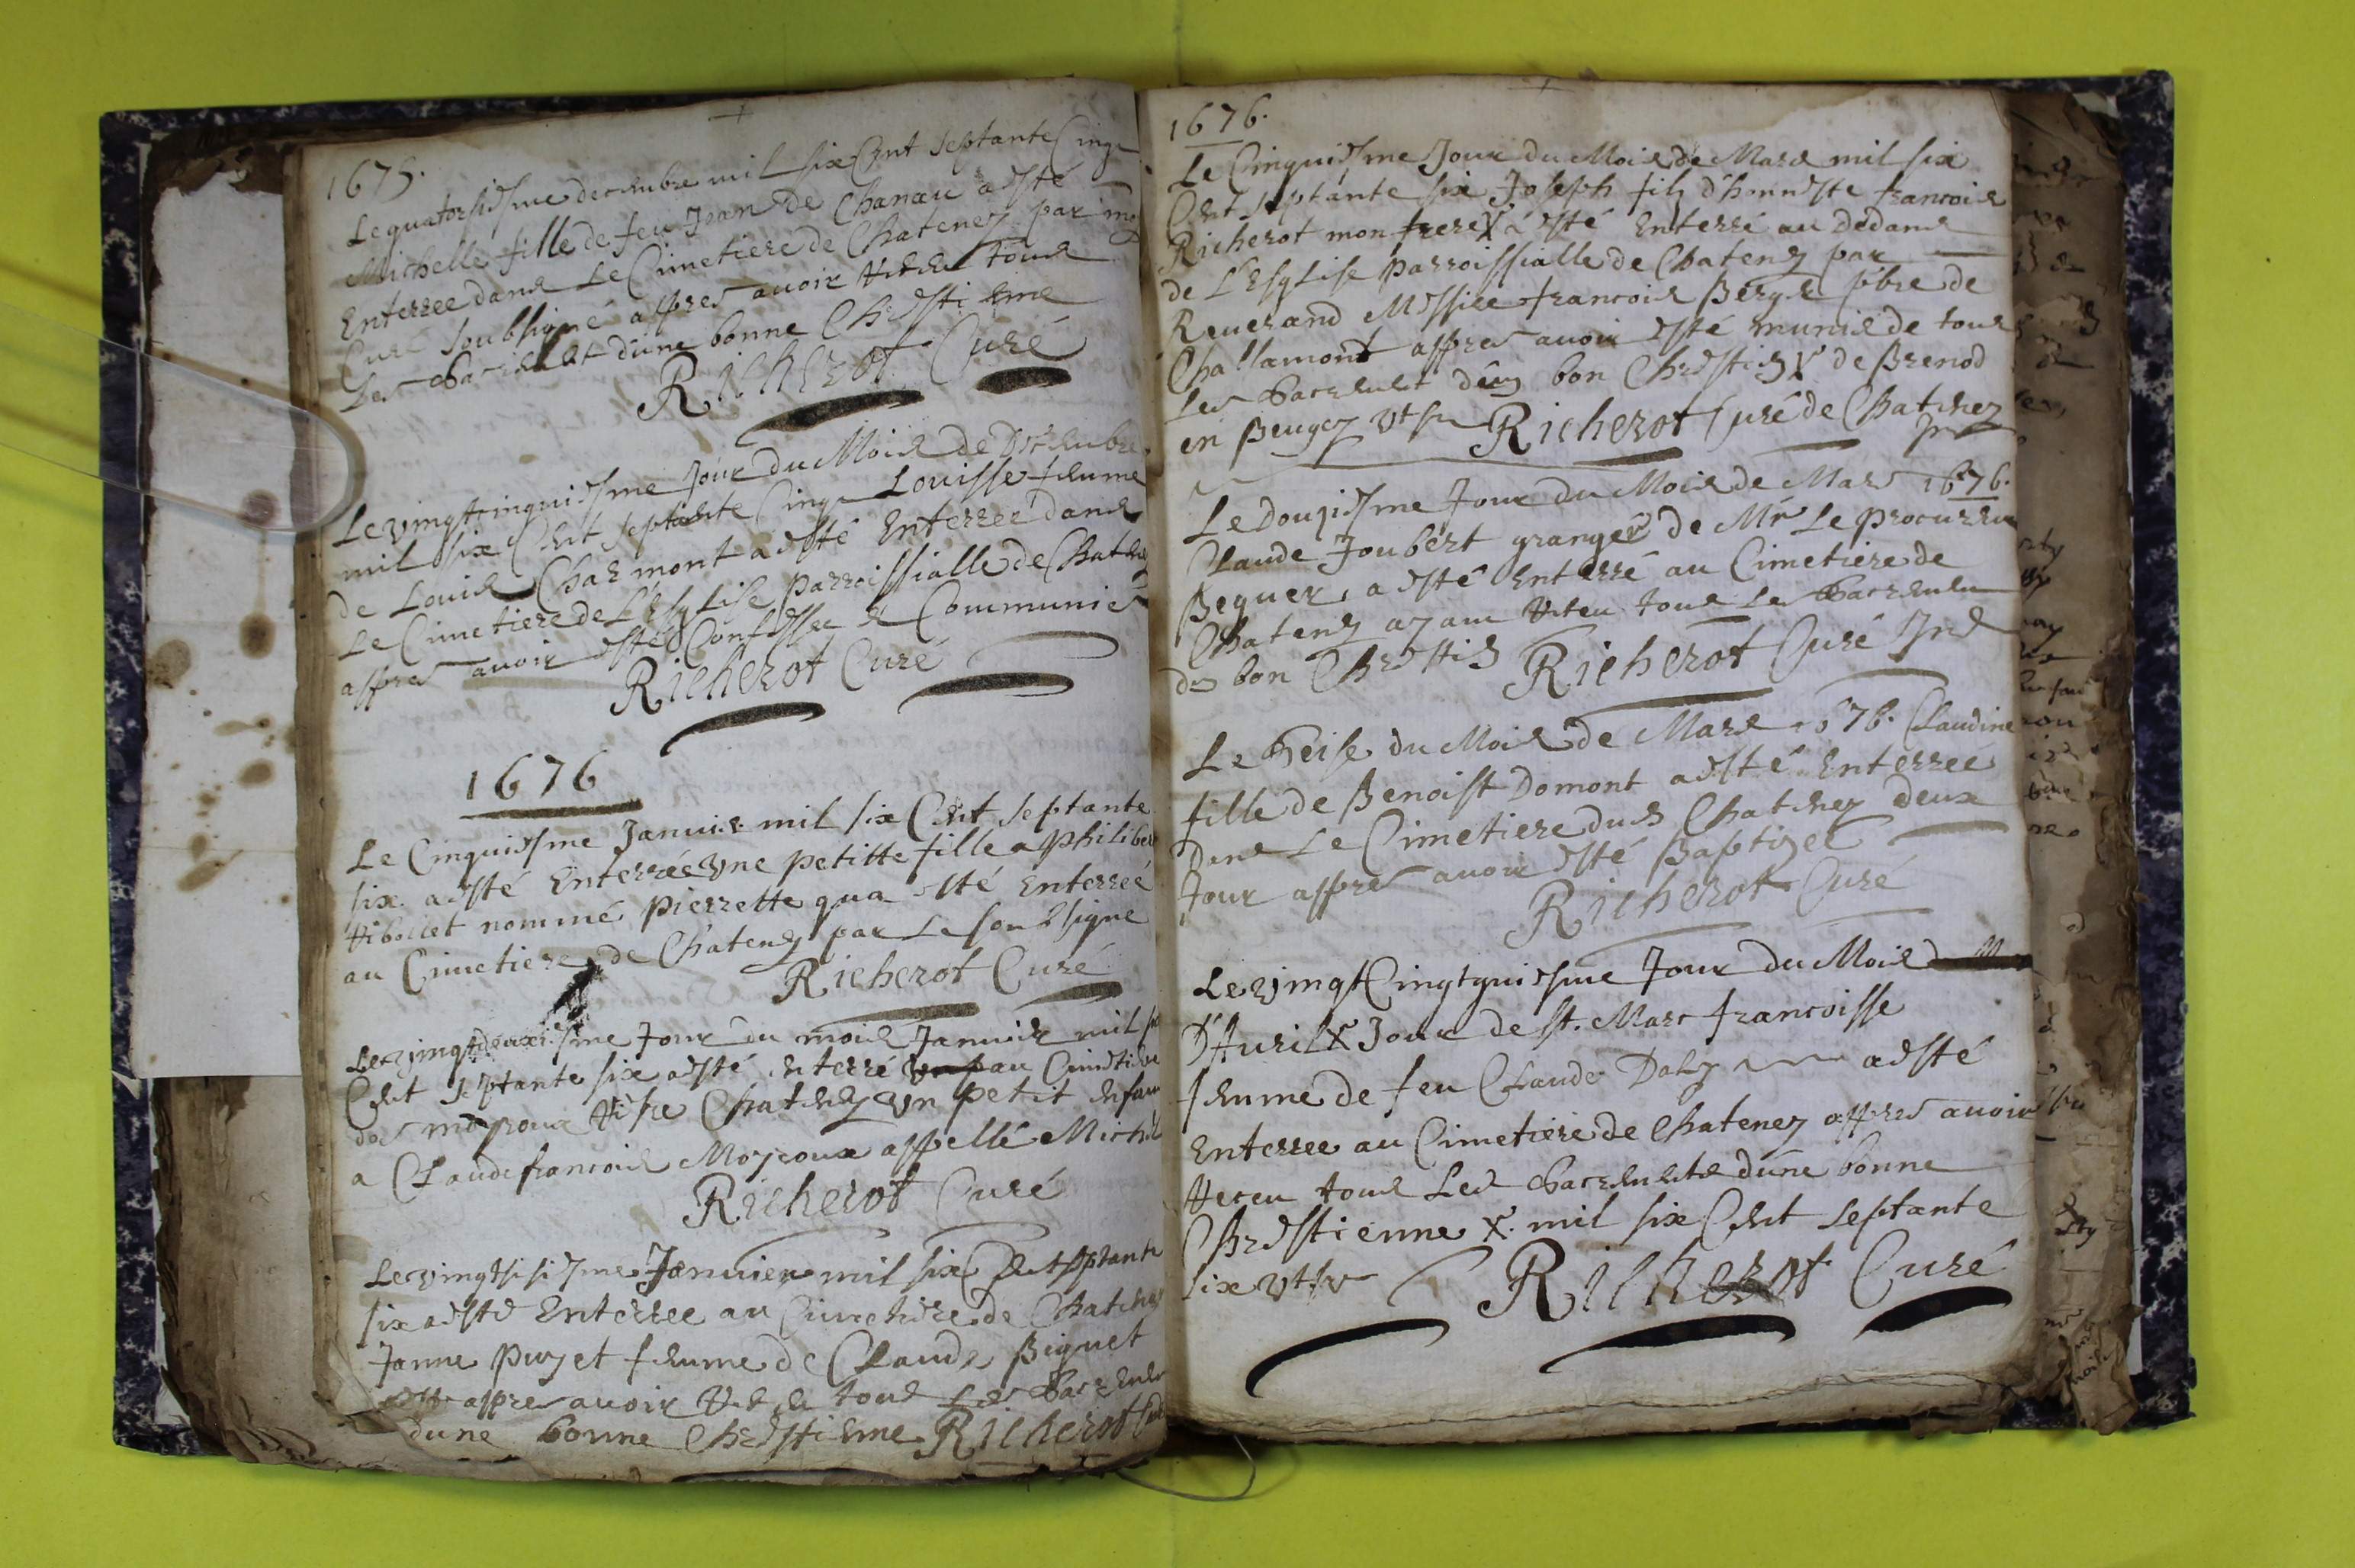 1675.
Le quatorsiesme decembre mil six Cent septante Cinq
Michelle fille de feu Jean de Chanau a esté
Enterree dans Le Cimetiere de Chateney par moy
Curé soubsigné appres avoir Receu tous
Les Sacremt d'une bonne Chrestienne
Richerot Curé
Le vingtcinquiesme Jour du Mois de Decembre
mil six Cent septante Cinq Louisse femme
de Louis Charmont a esté Enterree dans
Le Cimetiere de L'Esglise parroissialle de Chateney
appres avoir esté Confessee & Communiee
Richerot Curé
1676
Le Cinquiesme Janvier mil six Cent septante
six a esté Enterrée vne petitte fille a Philiber
Ribollet nommé pierrette qua esté Enterreé
au Cimetiere de Chateney par Le soubsigne
Richerot Curé
Le vingtdeuxiesme Jour du mois Janvier mil six
Cent septante six a esté enterré au Cimetiere
Chateney vn petit enfan
a Claude francois Moyroux appellé Michel
Richerot Curé
Le vingtsisiesme Janvier mil six Cent septante
six a esté Enterree au Cimetiere de Chateney
Janne puyet femme de Claude Biguet
appres avoir Receu tous Les Sacremt
dune bonne Chrestienne Richerot Curé
1676.
Le Cinquiesme Jour du Mois de Mars mil six
Cent septante six Joseph filz d'honneste francois
Richerot mon frere X a esté Enterré au Dedans
de L'Esglise parroissialle de Chateney par
Reverand Messire francois Berger pbre de
Challamont appres avoir esté munis de tous
Les Sacrement dun bon Chrestien X de Brenod
en Beugey vt sr Richerot Curé de Chateney
Le Douziesme Jour du Mois de Mars 1676.
Claude Joubert granger de Mr Le procureur
Bequer, a esté Enterré au Cimetiere de
Chateney ayant Receu tous Les Sacremens
dun bon Chrestien Richerot Curé
Le treise du Mois de Mars 1676. Claudine
fille de Benoist Domont a esté Enterreé
Dans Le Cimetiere dud Chateney deux
Jour appres avoir esté Baptizee
Richerot Curé
Le vingtCingtquiesme Jour du Mois
D'Avril X Jour de st. Marc francoisse
femme de feu Claude Daly a esté
Enterree au Cimetiere de Chateney appres avoir
Receu tous Les Sacrements dúne bonne
Chrestienne X. mil six Cent septante
six vt sr Richerot Curé